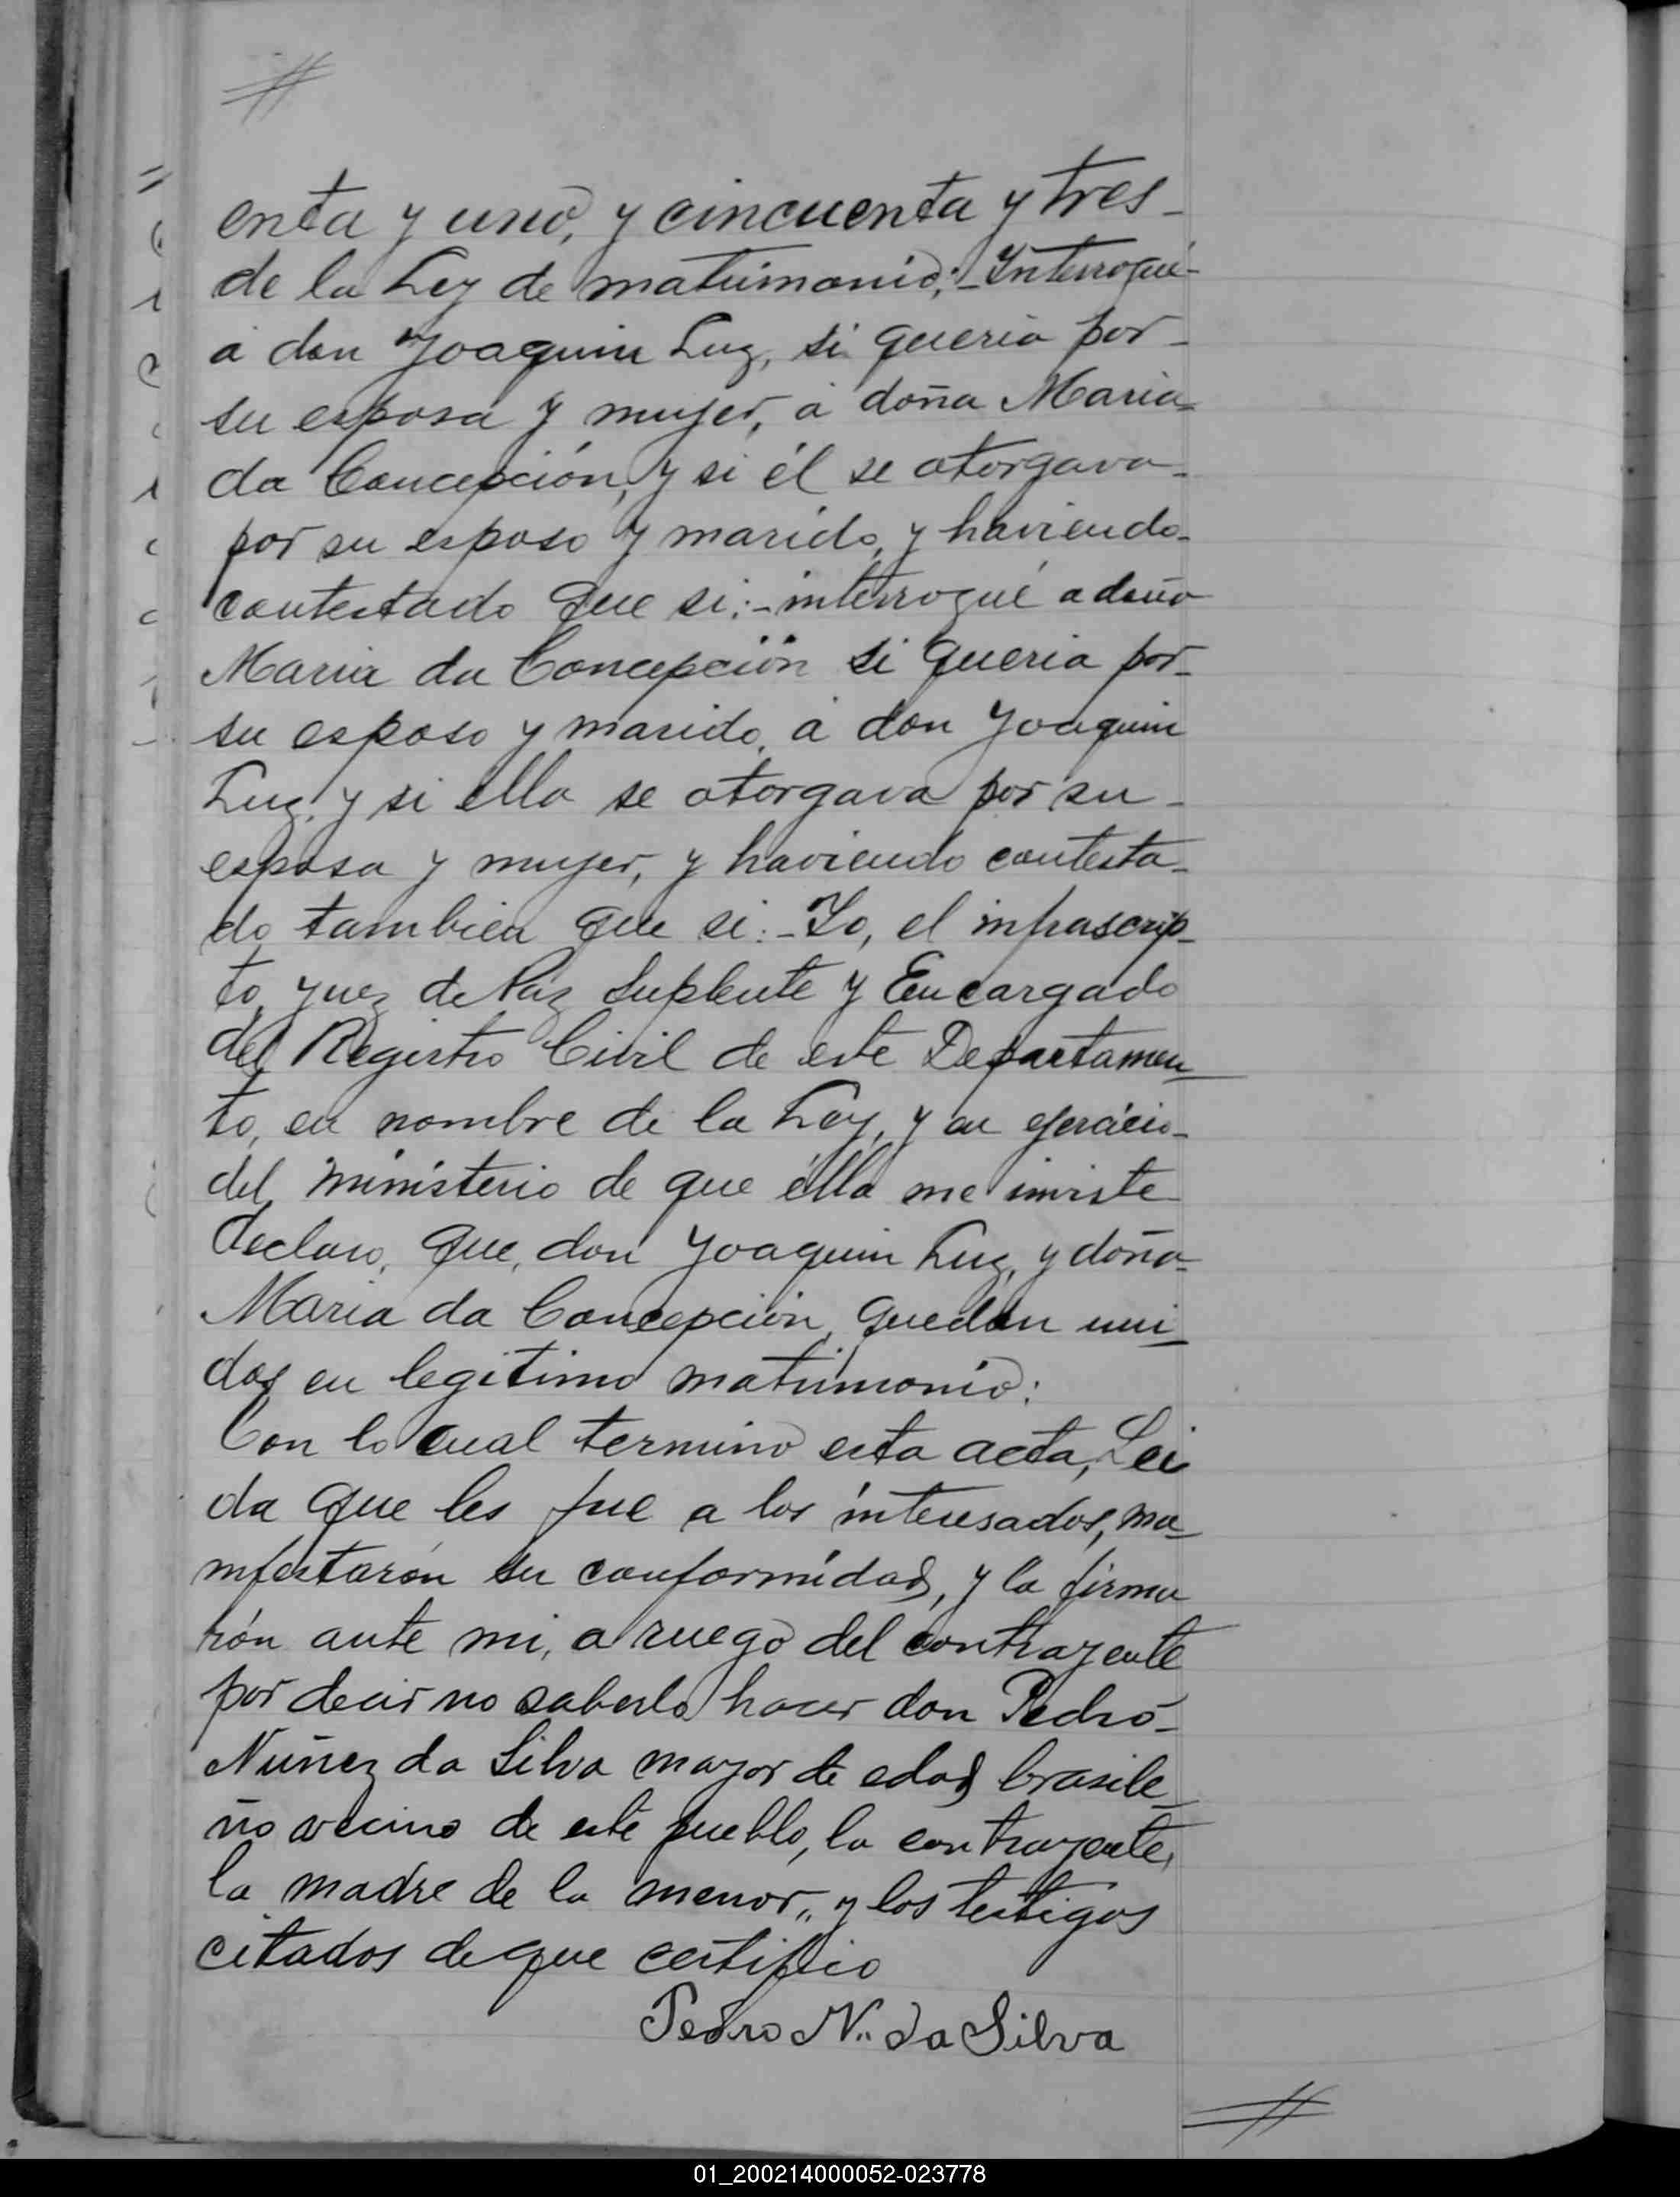 enta y uno, y cincuenta y tres-
de la Ley de matrimonio;-Interrogué-
á don Joaquin Luz, si queria por-
su esposa y mujer, á doña Maria-
da Concepción, y si él se otorgava-
por su esposo y marido, y haviendo-
contestado que si:-interrogué a doña
Maria da Concepción si queria por-
su esposo y marido, á don Joaquin
Luz, y si ella se otorgava por su-
esposa y mujer, y haviendo contesta-
do tambien que si:-Yo, el infrascrip-
to, Juez de Paz Suplente y Encargado
del Registro Civil de este Departamen-
to, en nombre de la Ley, y en ejercicio-
del ministerio de que élla me inviste
declaro, que, don Joaquin Luz, y doña-
Maria da Concepción, quedan uni-
dos en legitimo matrimonio:
Con lo cual termino esta acta, Lei
da que les fue a los interesados, ma-
nifestarón su conformidad, y la firma
rón ante mi, a ruego del contrayente
por decir no saberlo hacer don Pedro-
Nuñez da Silva mayor de edad brasile-
ño vecino de este pueblo, la contrayente,
la madre de la menor,, y los testigos
citados de que certifico
Pedro N.. da Silva
01_200214000052-023778